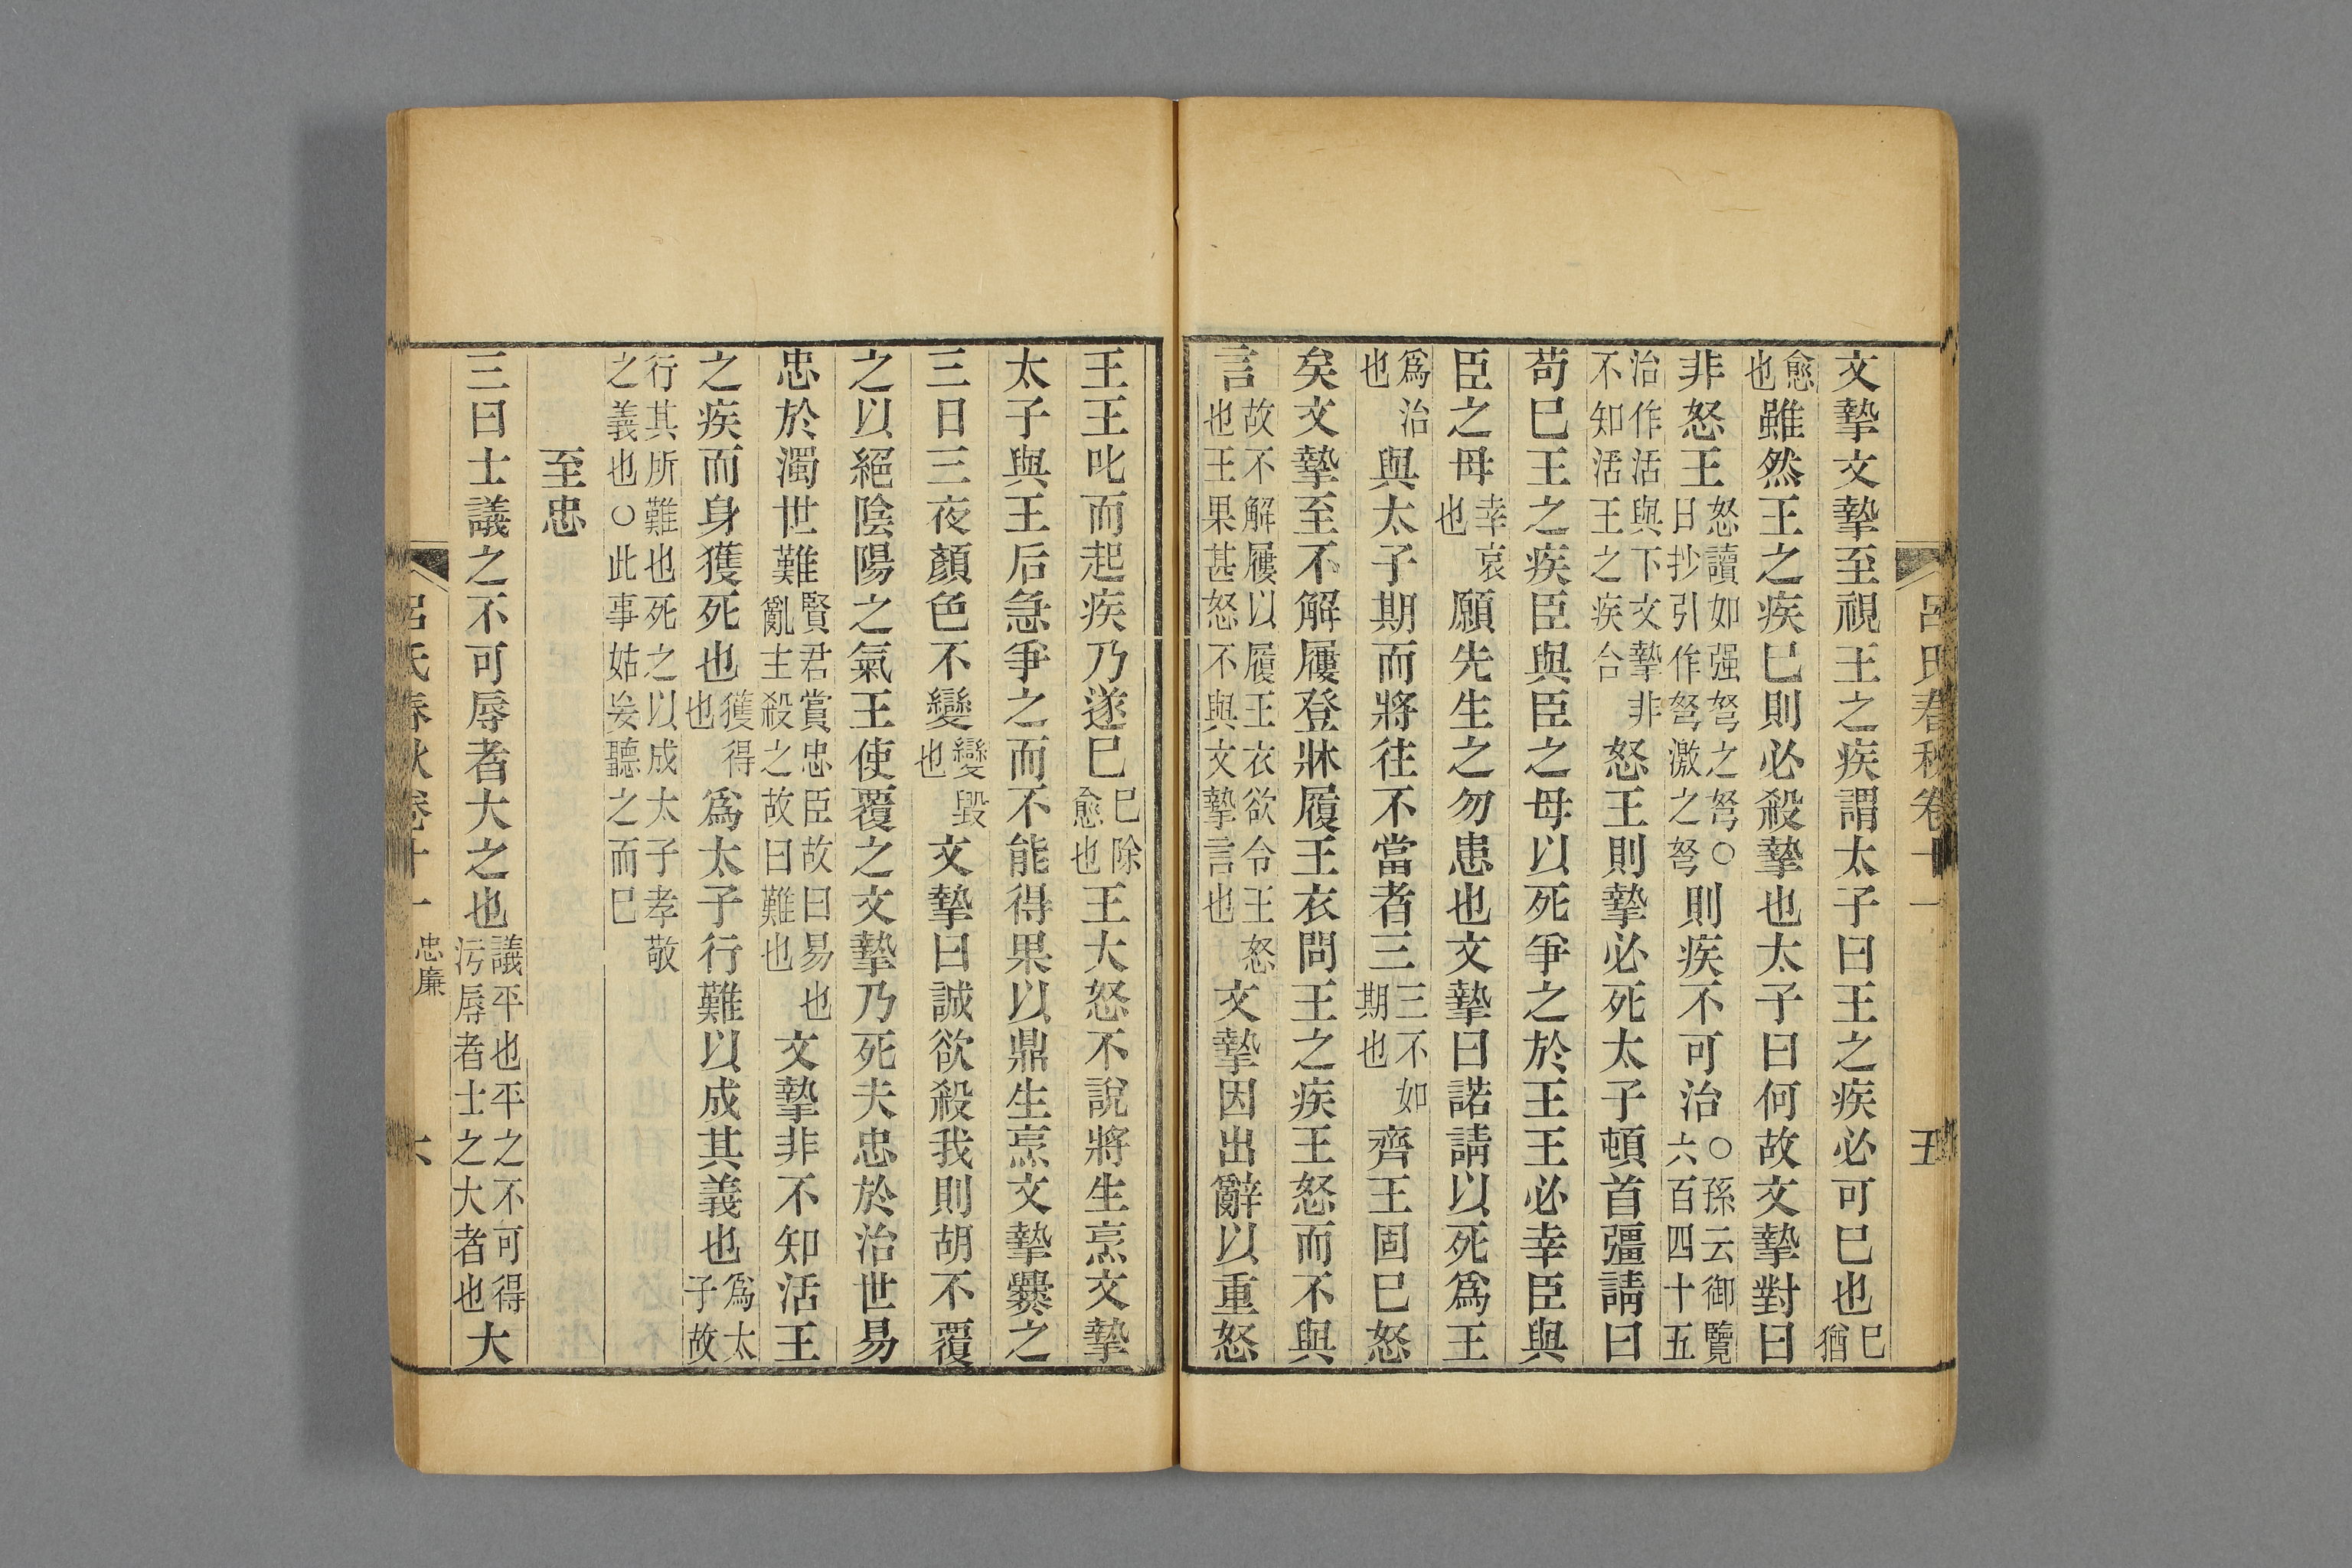 呂氏春秋卷十一 五
文摯文摯至視王之疾謂太子曰王之疾必可巳也巳猶
愈也雖然王之疾巳則必殺摯也太子曰何故文摯對曰
非怒王怒讀如强弩之弩○日抄引作弩激之弩則疾不可治○孫云御覽六百四十五
治作活與下文摯非不知活王之疾合怒王則摯必死太子頓首彊請曰
苟巳王之疾臣與臣之母以死爭之於王王必幸臣與
臣之母幸哀也願先生之勿患也文摯曰諾請以死爲王
爲治也與太子期而將往不當者三三不如期也齊王固巳怒
矣文摯至不解屨登牀履王衣問王之疾王怒而不與
言故不解屨以履王衣欲令王怒也王果甚怒不與文摯言也文摯因出辭以重怒
王王叱而起疾乃遂巳巳除愈也王大怒不說將生烹文摯
太子與王后急爭之而不能得果以鼎生烹文摯爨之
三日三夜顏色不變變毀也文摯曰誠欲殺我則胡不覆
之以絕陰陽之氣王使覆之文摯乃死夫忠於治世易
忠於濁世難賢君賞忠臣故曰易也亂主殺之故曰難也文摯非不知活王
之疾而身獲死也獲得也爲太子行難以成其義也爲太子故
行其所難也死之以成太子孝敬之義也○此事姑妄聽之而巳
至忠
三曰士議之不可辱者大之也議平也平之不可得污辱者士之大者也大
呂氏春秋卷十一 忠廉 六